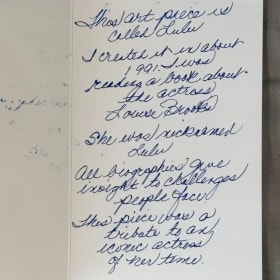 This art piece is
called Lulu
I created it in about
1991. I was
reading a book about
the actress
Louise Brooks
She was nicknamed
Lulu
All biographies give
insight to challenges
people face
This piece was a
tribute to an
iconic actress
of her time.